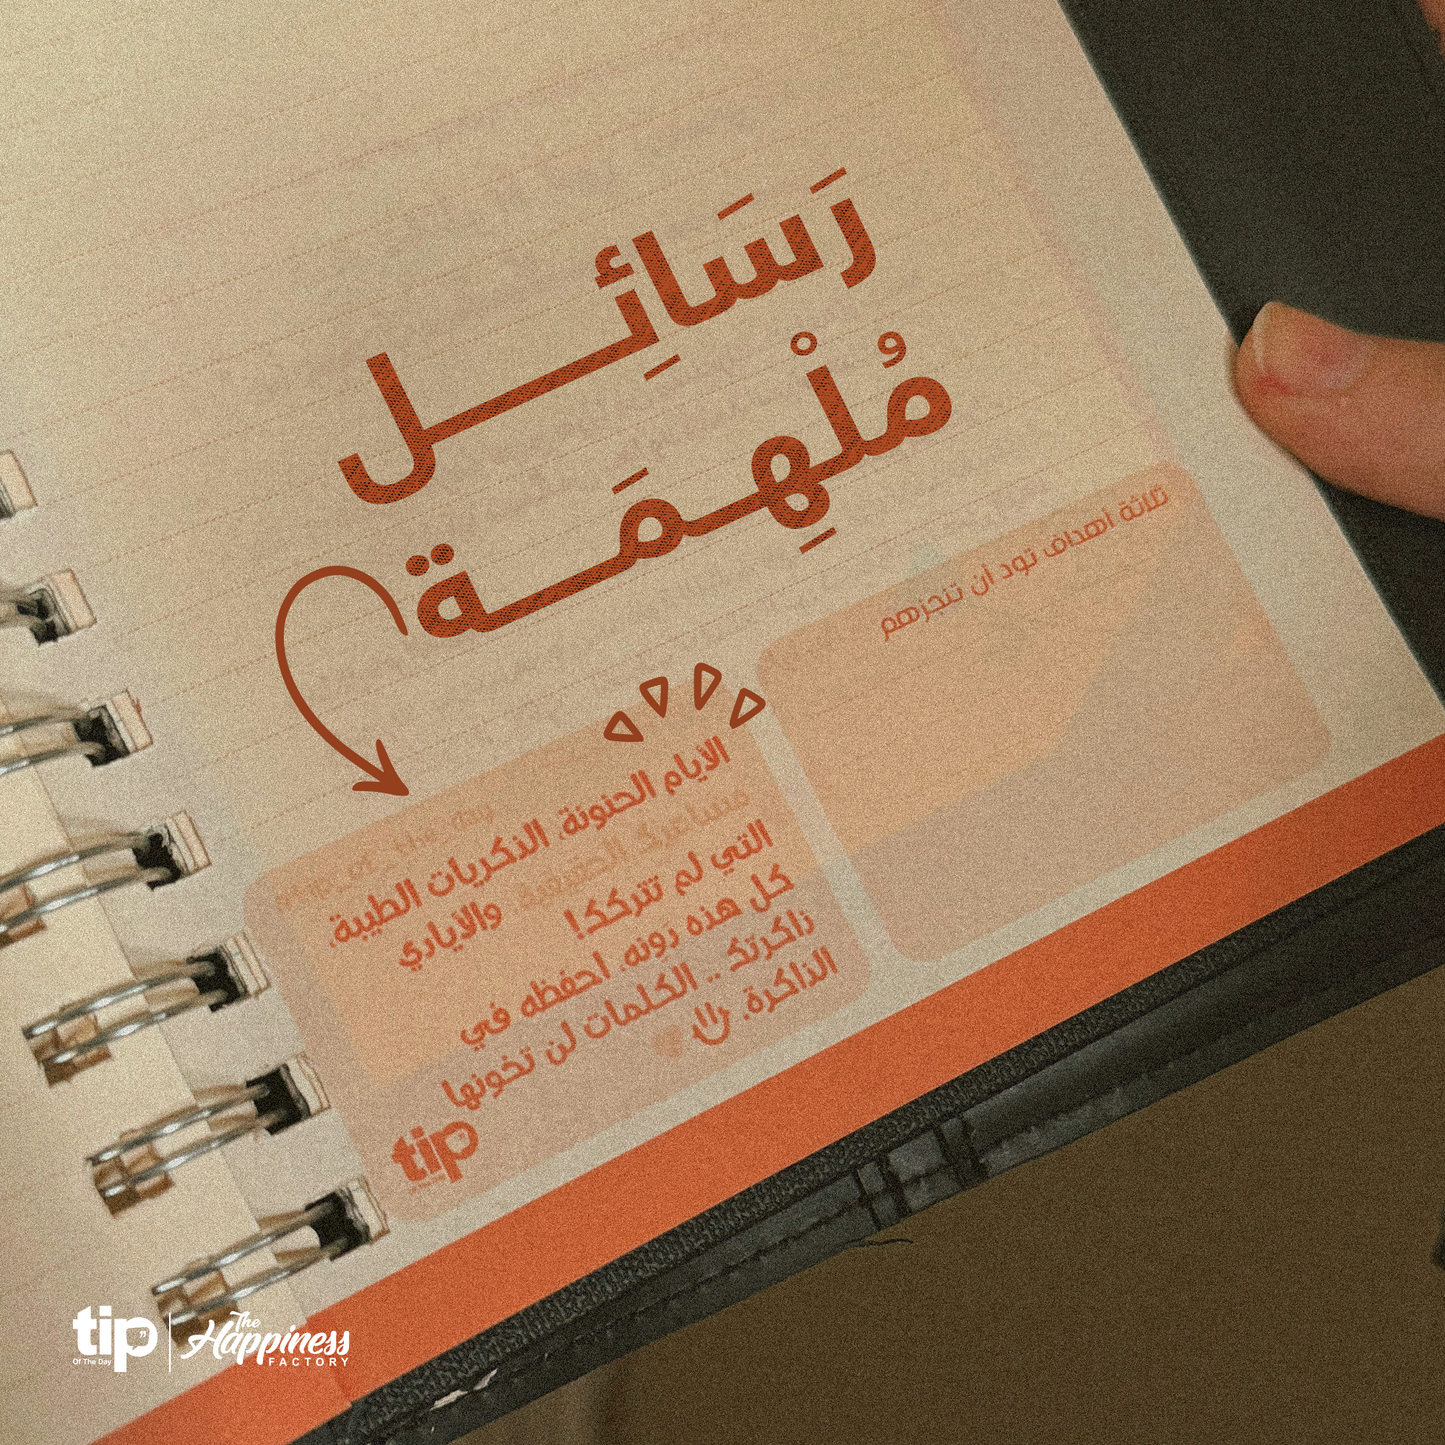 رَسَائِـــل
مُلْهِـمَـــة
ثلاثة أهداف تود أن تنجزهم
الأيام الحنونة، الذكريات الطيبة،
والأيادي
التي لم تتركك!
كل هذه دونه، احفظه في
ذاكرتك .. الكلمات لن تخونها
الذاكرة.
tip
tip
Of The Day
The
Happiness
FACTORY